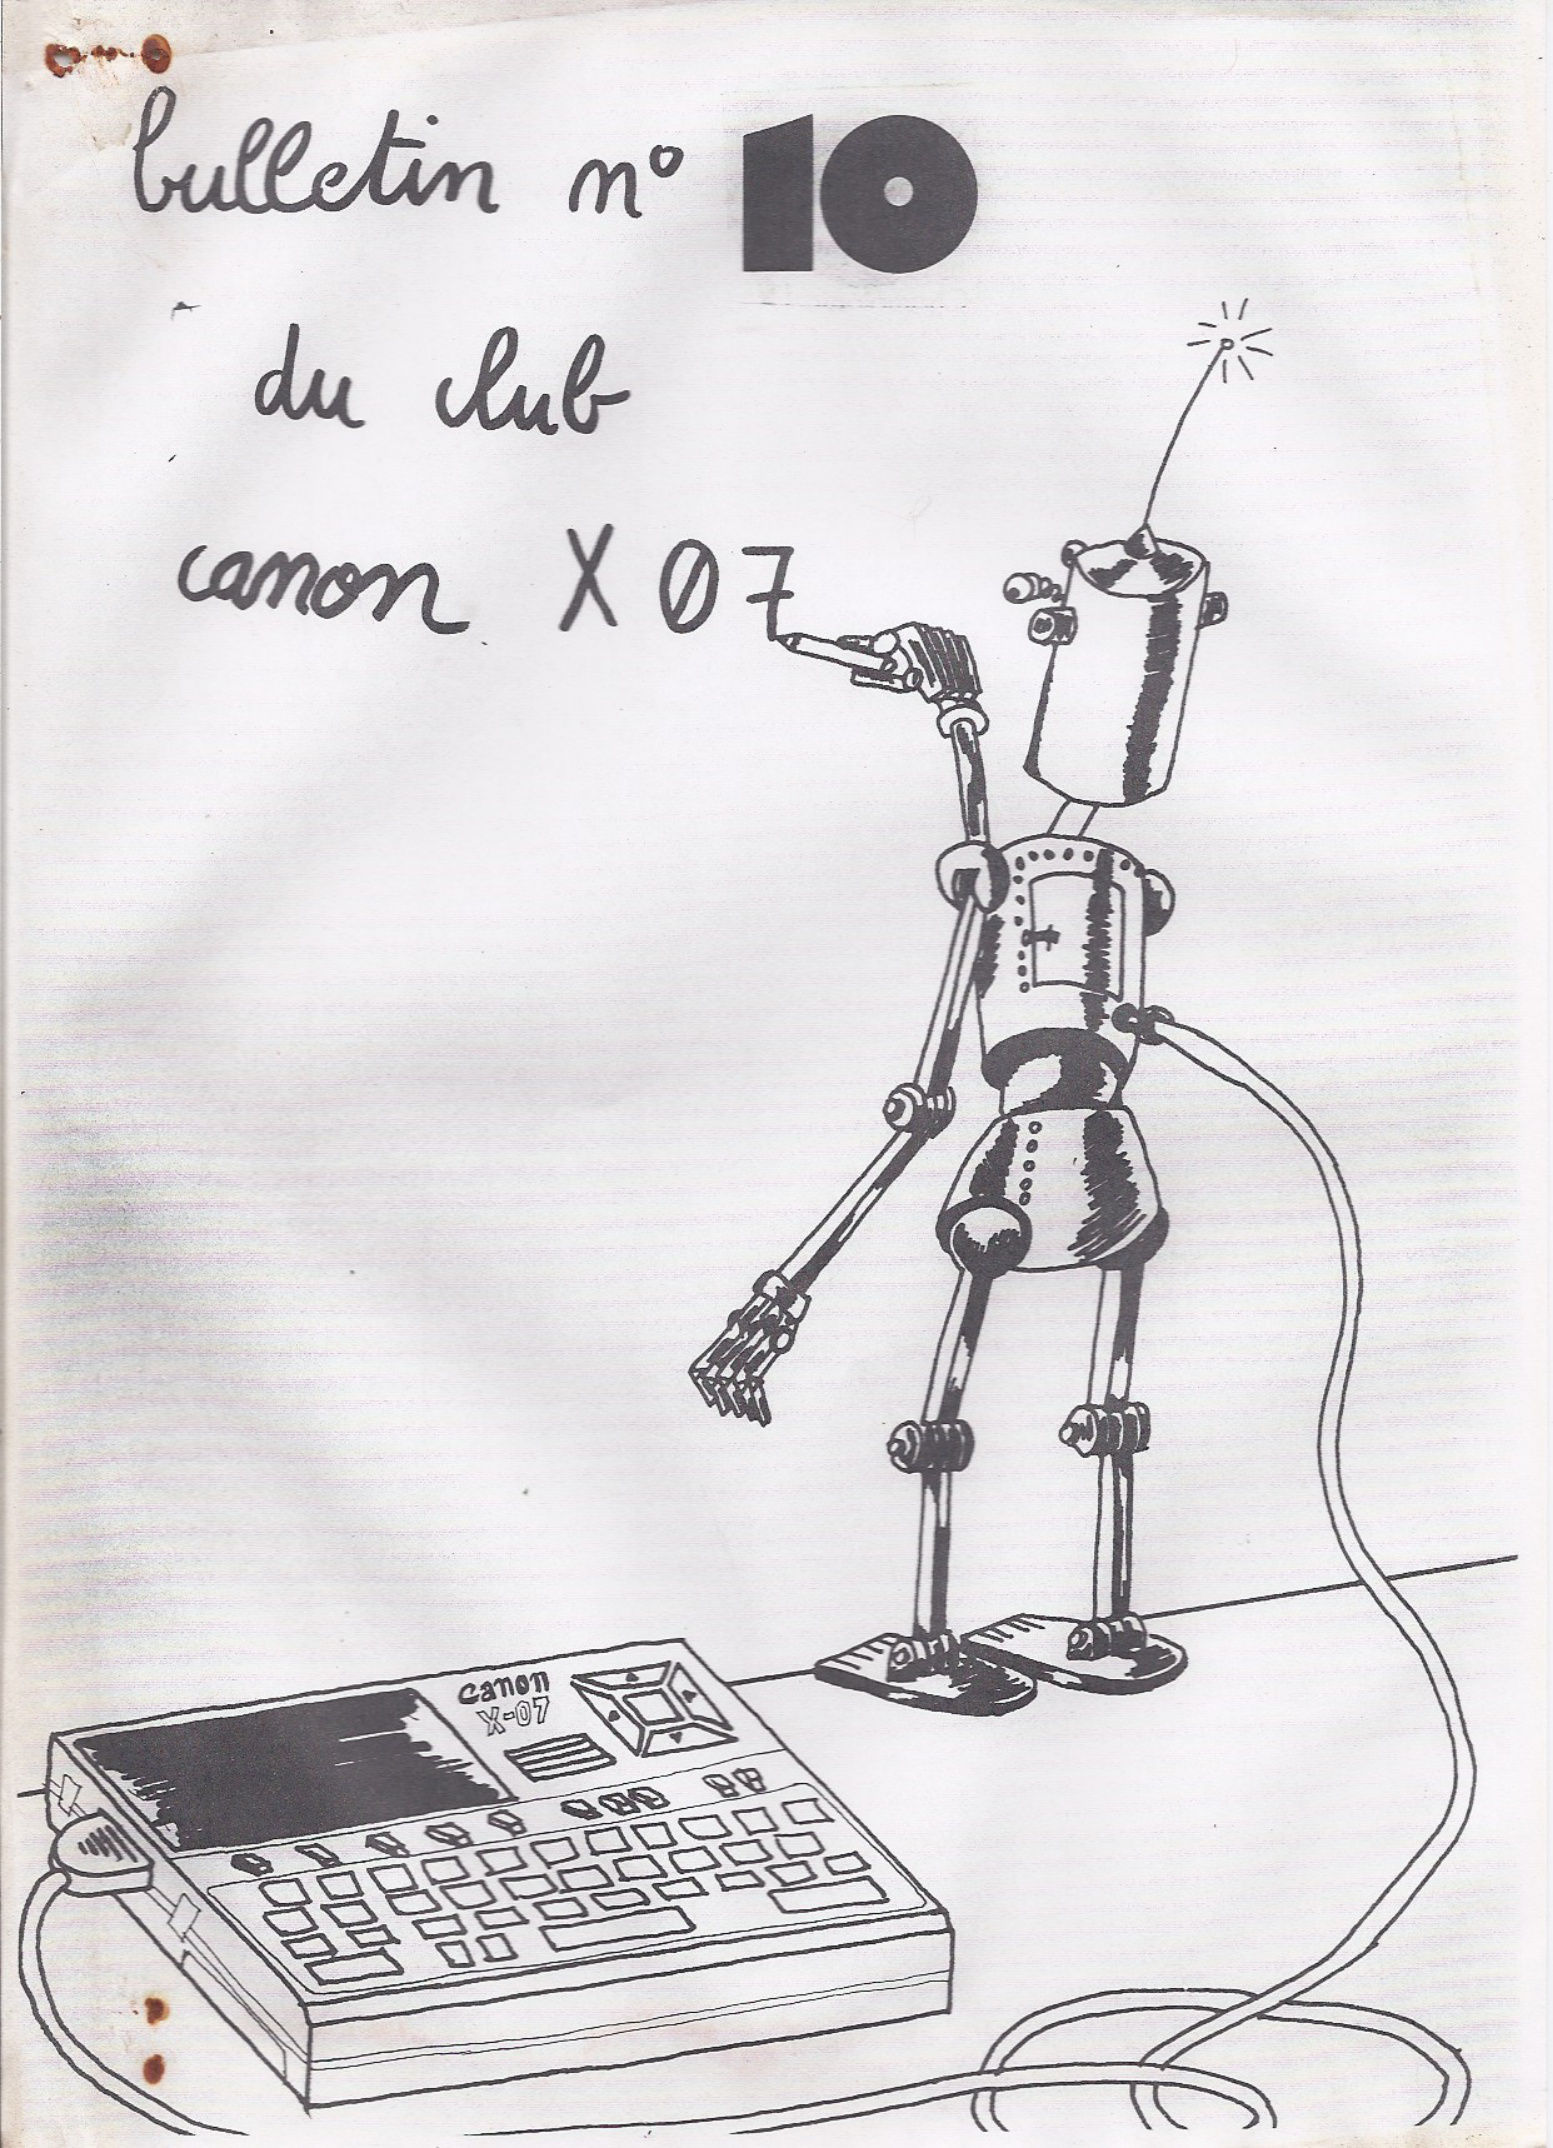 bulletin n° 10
du club
canon X 07
canon
X-07